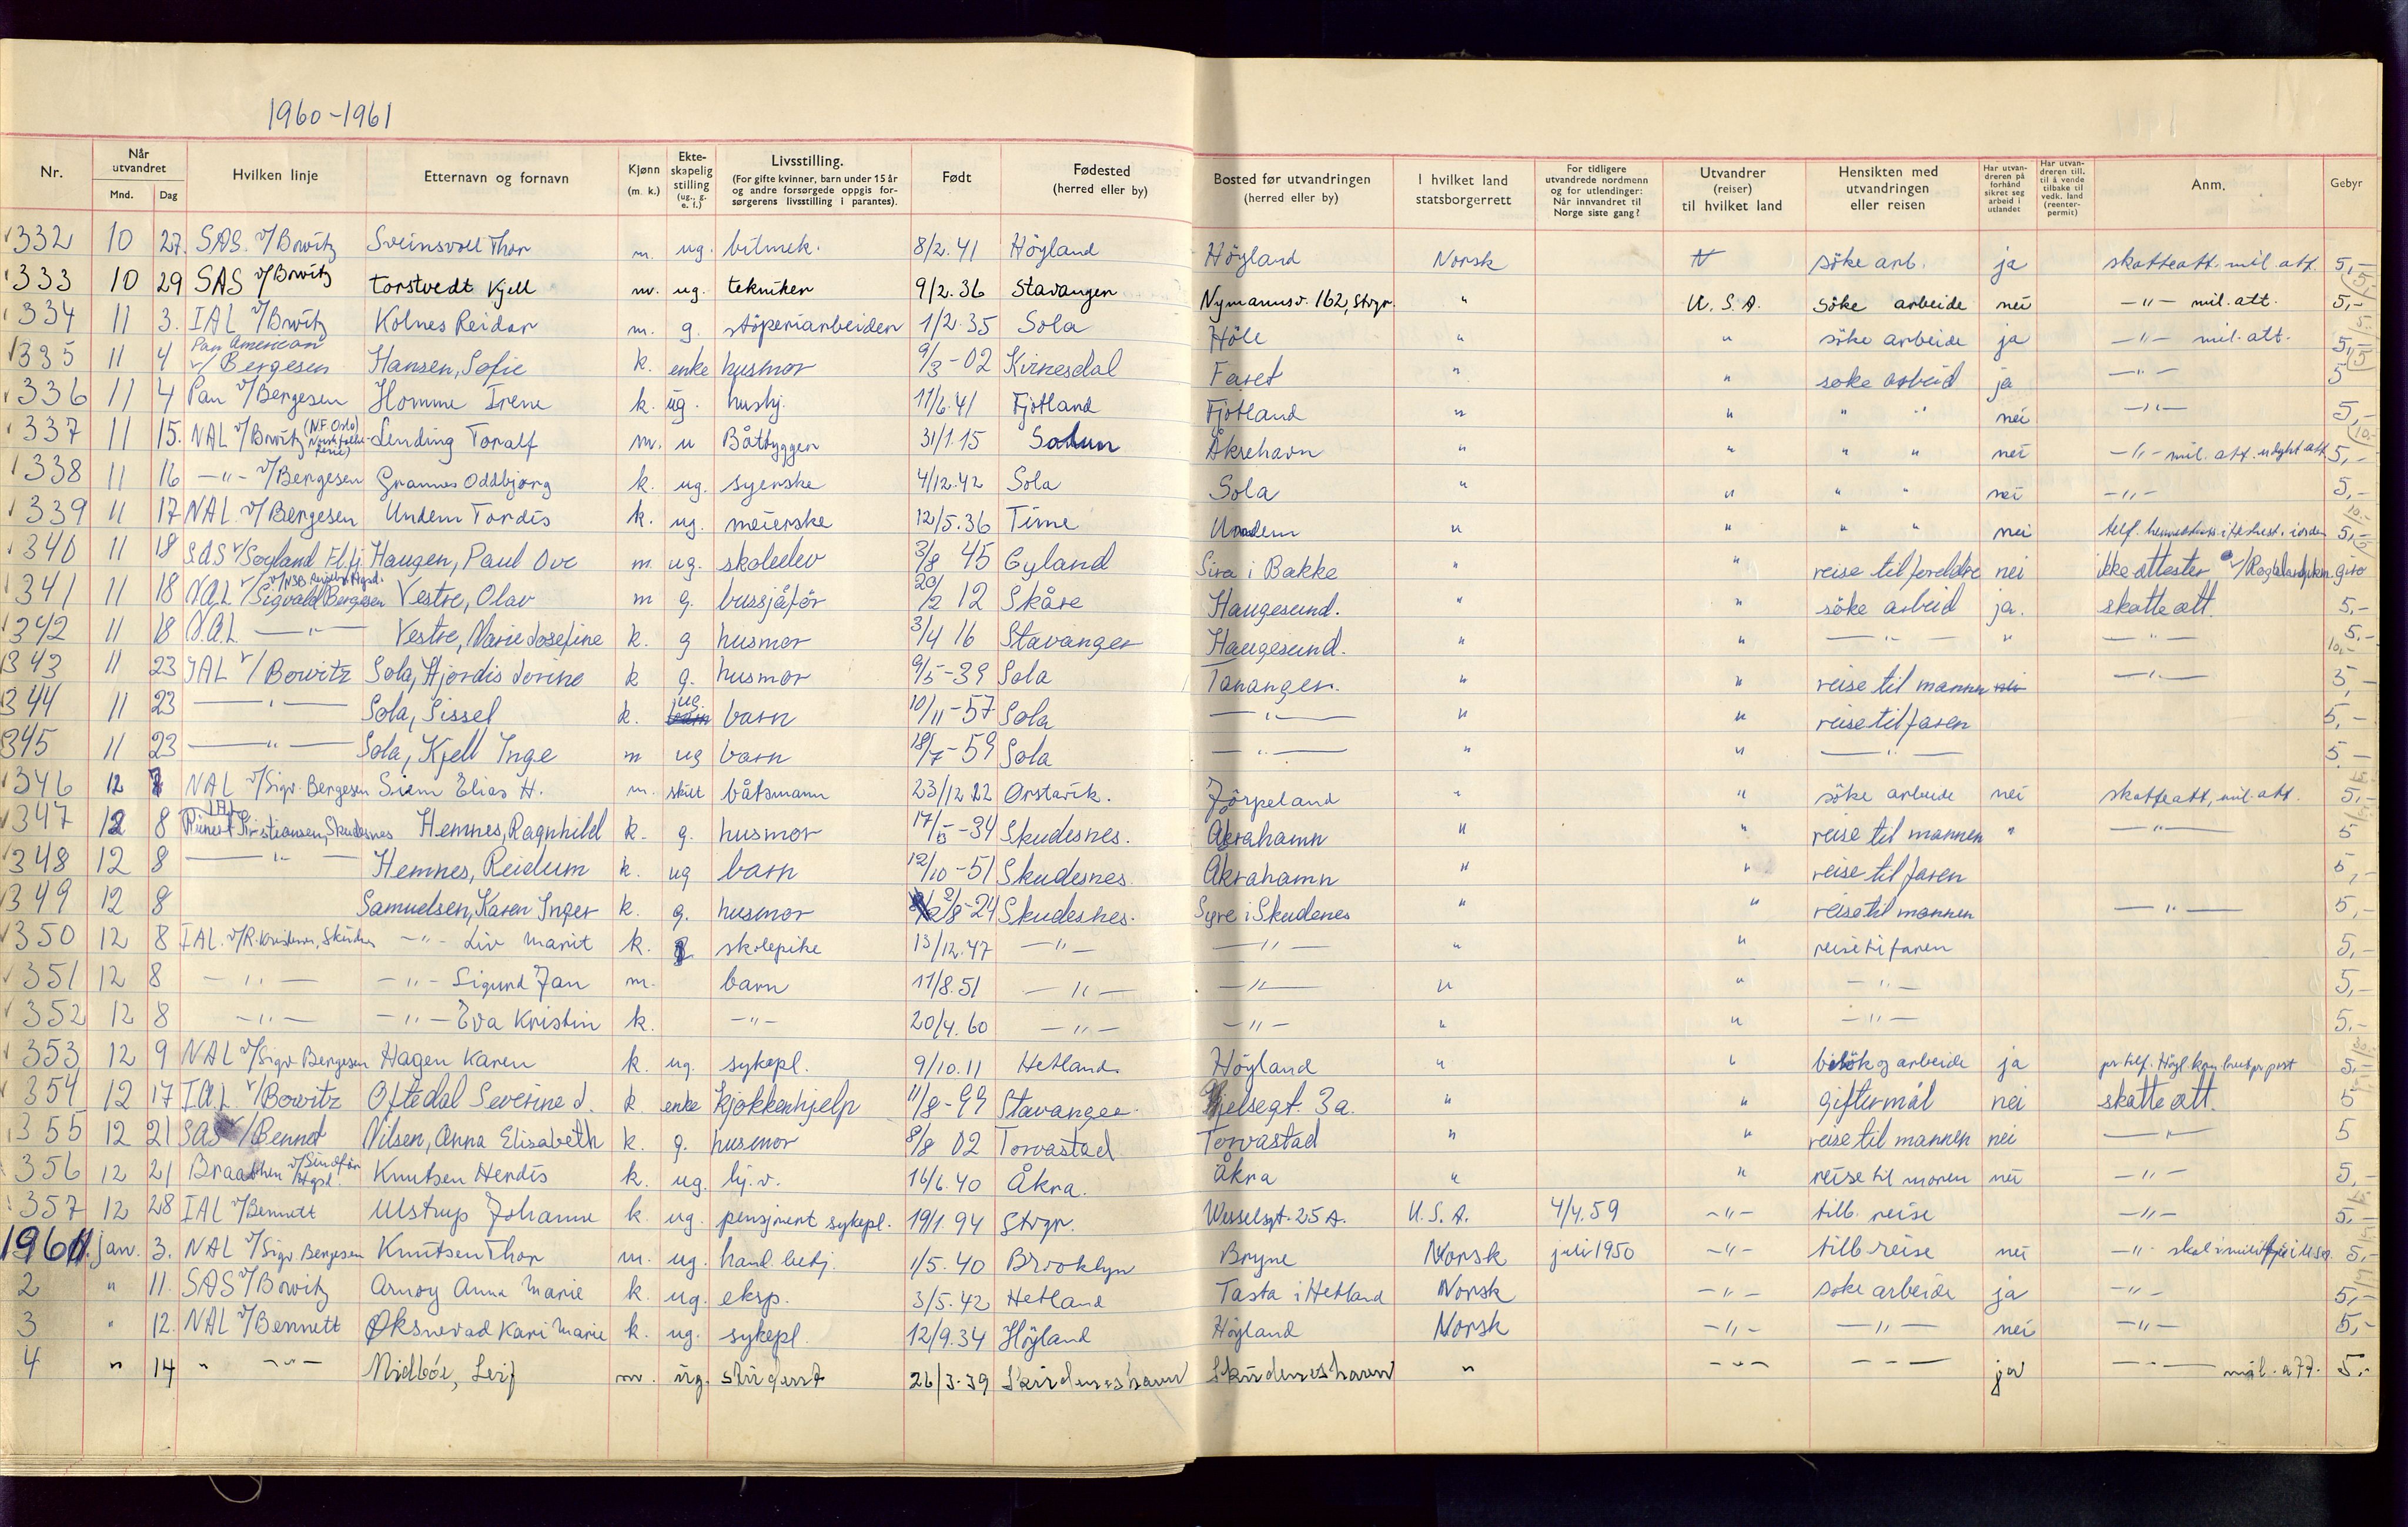 1960-1961
Nr. Når utvandret Mnd. Dag Hvilken linje Etternavn og fornavn Kjønn (m. k.) Ekteskapelig stilling (ug., g. e. f.) Livsstilling. (For gifte kvinner, barn under 15 år og andre forsørgede oppgis forsørgerens livsstilling i parantes). Født Fødested (herred eller by) Bosted før utvandringen (herred eller by) I hvilket land statsborgerrett For tidligere utvandrede nordmenn og for utlendinger: Når innvandret til Norge siste gang? Utvandrer (reiser) til hvilket land Hensikten med utvandringen eller reisen Har utvandreren på forhånd sikret seg arbeid i utlandet Har utvandreren till. til å vende tilbake til vedk. land (reenterpermit) Anm. Gebyr
332 10 27. SAS. v/Bowitz Sveinsvoll Thor m. ug. bilmek. 8/2.41 Höyland Höyland Norsk söke arb. ja skatteatt. mil. att. 5,-
333 10 29 SAS v/Bowitz Torstvedt Kjell m. ug. tekniker 9/2.36 Stavanger Nymannsv. 162, Stvgr. " U.S.A. söke arbeide nei -"- mil. att. 5,-
334 11 3. IAL v/Bowitz Kolnes Reidar m. g. stöperiarbeider 1/2.35 Sola Höle " " söke arbeide ja -"- mil. att. 5,-
335 11 4 Pan American v/Bergesen Hansen, Sofie k. enke husmor 9/3-02 Kirnesdal Faret " " söke arbeid ja -"- 5
336 11 4 Pan v/Bergesen Homme Irene k. ug. hushj. 11/6.41 Fjotland Fjotland " " " " nei -"- 5,-
337 11 15. NAL v/Bowitz (N.F. Oslo) Lending Toralf m. u Båtbygger 31/1.15 Åkrehavn " " " " nei -"- mil. att. 5,-
338 11 16 -"- v/Bergesen Grannes Oddbjørg k. ug. syerske 4/12.42 Sola Sola " " " " nei -"- 5,-
339 11 17 NAL v/Bergesen Undem Tordis k. ug. meierske 12/5.36 Time Undem " " " " nei 5,-
340 11 18 SAS v/Sogland Haugen, Paul Ove m. ug. skoleelev 3/8 45 Gyland Sira i Bakke " " reise til foreldre nei ikke attester giro
341 11 18 N.A.L v/Sigvald Bergesen Vestre, Olav m g. bussjåför 20/2 12 Skåre Haugesund. " " söke arbeid ja. skatte att. 5,-
342 11 18 N.A.L -"- Vestre, Marie Josefine k. g husmor 3/4 16 Stavanger Haugesund. " " -"- " -"- 5,-
343 11 23 IAL v/Bowitz Sola, Hjördis Jorine k g. husmor 9/5-39 Sola Tananger. " " reise til mannen -"- 5,-
344 11 23 -"- Sola, Sissel k. ug. barn 10/11-57 Sola -"- " " reise til faren 5,-
345 11 23 -"- Sola, Kjell Inge m ug barn 18/7-59 Sola -"- " " -"- 5,-
346 12 7 NAL v/Sigv. Bergesen Siem Elias H. m. skilt båtsmann 23/12 22 Örstavik. Jörpeland " " söke arbeide nei skatteatt, mil. att. 5,-
347 12 8 Kristiansen, Skudesnes Hemnes, Ragnhild k. g. husmor 17/5-34 Skudesnes. Åkrahamn " " reise til mannen " -"- 5
348 12 8 -"- Hemnes, Reidum k. ug barn 12/10-51 Skudesnes. Åkrahamn " " reise til faren 5,-
349 12 8 Samuelsen, Karen Inger k. g. husmor 2/8-24 Skudesnes. Syre i Skudenes " " reise til mannen -"- 5,-
350 12 8 IAL. -"- Liv Marit k. skolepike 13/12.47 -"- -"- " " reise til faren 5,-
351 12 8 -"- -"- Sigurd Jan m. barn 11/8.51 -"- -"- " " -"- 5,-
352 12 8 -"- -"- Eva Kristin k. -"- 20/4.60 -"- -"- " " -"- 5.-
353 12 9 NAL v/Sigv. Bergesen Hagen Karen k. ug. sykepl. 9/10.11 Hetland. Höyland " " besök og arbeide ja 5,-
354 12 17 I.A.L v/Bowitz Oftedal Severine J. k enke kjøkkenhjelp 11/8-99 Stavanger. 3a. " " giftermål nei skatte att. 5
355 12 21 SAS v/Bennet Nilsen, Anna Elisabeth k. g. husmor 8/8 02 Torvastad Torvastad " " reise til mannen nei -"- 5
356 12 21 Braathen Knutsen Herdis k. ug. hj. v. 16/6.40 Åkra. Åkra " " reise til moren nei -"- 5,-
357 12 28 IAL v/Bennett Ulstrup Johanne k ug. pensjonert sykepl. 19/1.94 Stvgr. Wesselsgt. 25 A. U.S.A. 4/4.59 -"- tilb. reise -"- 5,-
1961 1. jan. 3. NAL v/Sigv Bergesen Knutsen Thor m. ug. hand. betj. 1/5.40 Brooklyn Bryne Norsk juli 1950 -"- tilb. reise nei -"- 5,-
2 " 11. SAS v/Bowitz Arnøy Anna Marie k. ug. eksp. 3/5.42 Hetland Tasta i Hetland Norsk -"- søke arbeide ja -"- 5,-
3 " 12. NAL v/Bennett Øksnevad Kari Marie k. ug. sykepl. 12/9.34 Höyland Höyland Norsk -"- -"- nei -"- 5,-
4 " 14 " -"- Midbøe, Leif m. ug. student 26/3.39 Skudeneshavn Skudeneshavn " -"- -"- ja -"- mil. att. 5.-